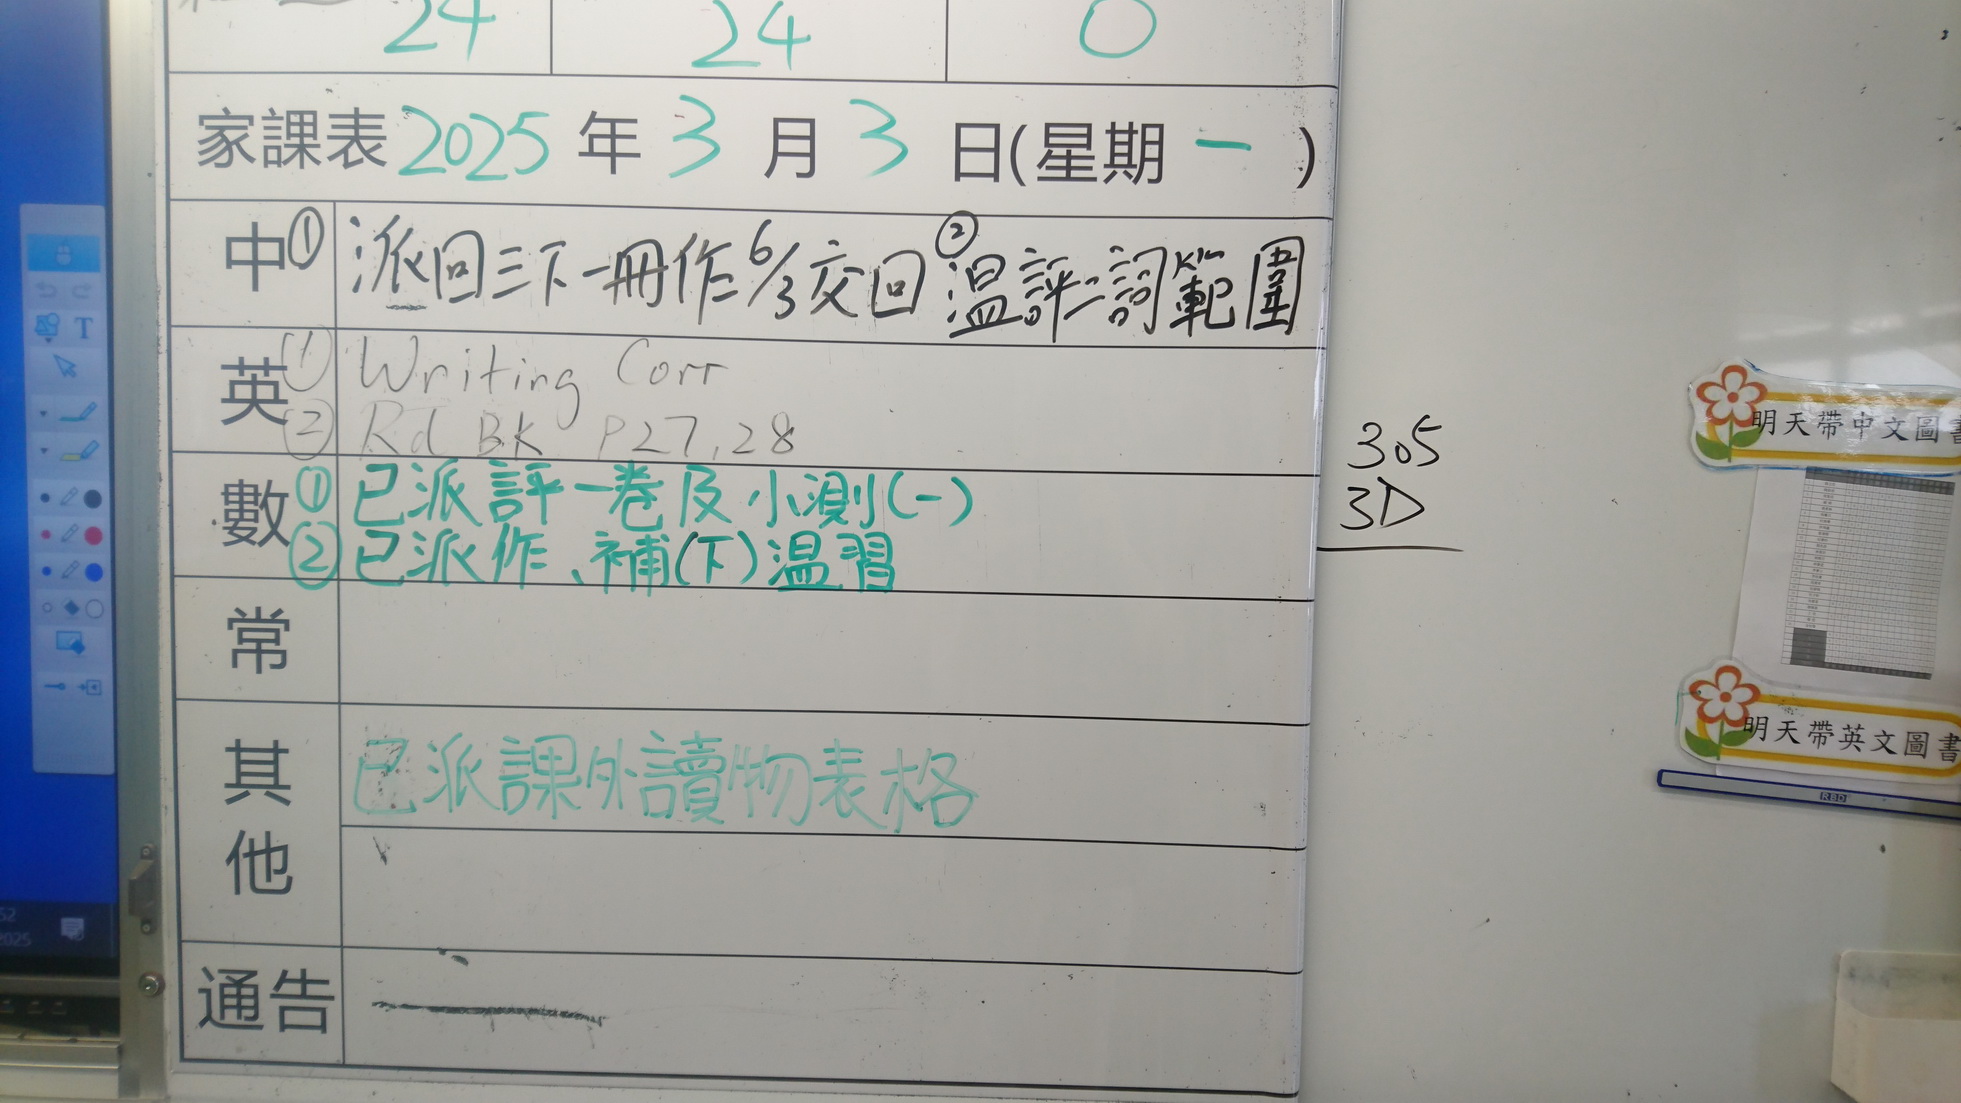 24 24 0
家課表 2025 年 3 月 3 日(星期 一 )
中 ① 派回三下一冊作 6/3 交回 ② 溫評二詞範圍
英 ① Writing Corr
② Rd BK P27,28
數 ① 已派評一卷及小測(一)
② 已派作、補(下)溫習
常
其他 已派課外讀物表格
通告
305
3D
明天帶中文圖書
明天帶英文圖書
RBD
T
2025